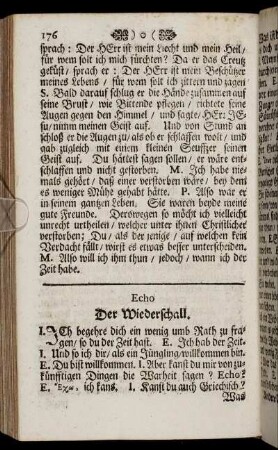 176
sprach: Der HErr ist mein Liecht und mein Heil/
für wem solt ich mich fürchten? Da er das Creutz
geküst/ sprach er: Der HErr ist mein Beschützer
meines Lebens/ für wem solt ich zittern und zagen
S. Bald darauf schlug er die Hände zusammen auf
seine Brust/ wie Bittende pflegen/ richtete seine
Augen gegen den Himmel/ und sagte/ HErr JE-
su/ nimm meinen Geist auf. Und von Stund an
schloß er die Augen zu/ als ob er schlaffen wolt/ und
gab zugleich mit einem kleinen Seuffzer seinen
Geist auf. Du hättest sagen sollen/ er wäre ent-
schlaffen und nicht gestorben. M. Ich habe nie-
mals gehört/ daß einer verstorben wäre/ bey dem
es weniger Mühe gehabt hätte. P. Also war er
in seinem gantzen Leben. Sie waren beyde meine
gute Freunde. Derowegen so möcht ich vielleicht
unrecht urtheilen/ welcher unter ihnen Christlicher
verstorben: Du/ als der jenige/ auf welchen kein
Verdacht fällt/ wirst es etwas besser unterscheiden.
M. Also will ich ihm thun/ jedoch/ wann ich der
Zeit habe.
Echo
Der Wiederschall.
I. ICh begehre dich ein wenig umb Rath zu fra-
gen/ so du der Zeit hast. E. Ich hab der Zeit.
I. Und so ich dir/ als ein Jüngling/ willkommen bin.
E. Du bist willkommen. I. Aber kanst du mir von zu-
künfftigen Dingen die Warheit sagen? Echo?
E. Ἔχω, ich kans. I. Kanst du auch Griechisch?
Was